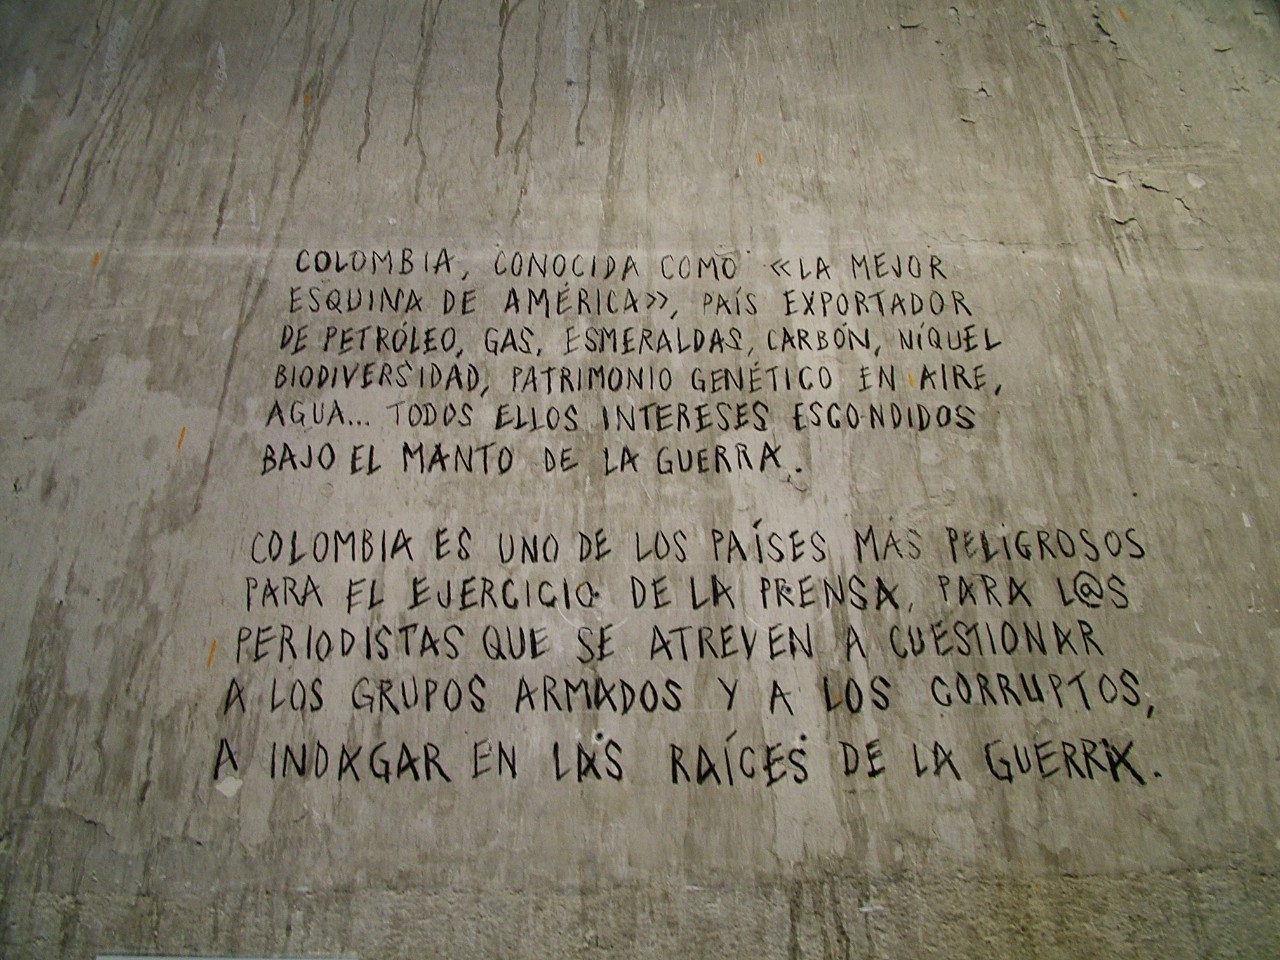 COLOMBIA, CONOCIDA COMO «LA MEJOR
ESQUINA DE AMÉRICA», PAÍS EXPORTADOR
DE PETRÓLEO, GAS, ESMERALDAS, CARBÓN, NÍQUEL
BIODIVERSIDAD, PATRIMONIO GENÉTICO EN AIRE,
AGUA... TODOS ELLOS INTERESES ESCONDIDOS
BAJO EL MANTO DE LA GUERRA.
COLOMBIA ES UNO DE LOS PAÍSES MÁS PELIGROSOS
PARA EL EJERCICIO DE LA PRENSA, PARA L@S
PERIODISTAS QUE SE ATREVEN A CUESTIONAR
A LOS GRUPOS ARMADOS Y A LOS CORRUPTOS,
A INDAGAR EN LAS RAÍCES DE LA GUERRA.